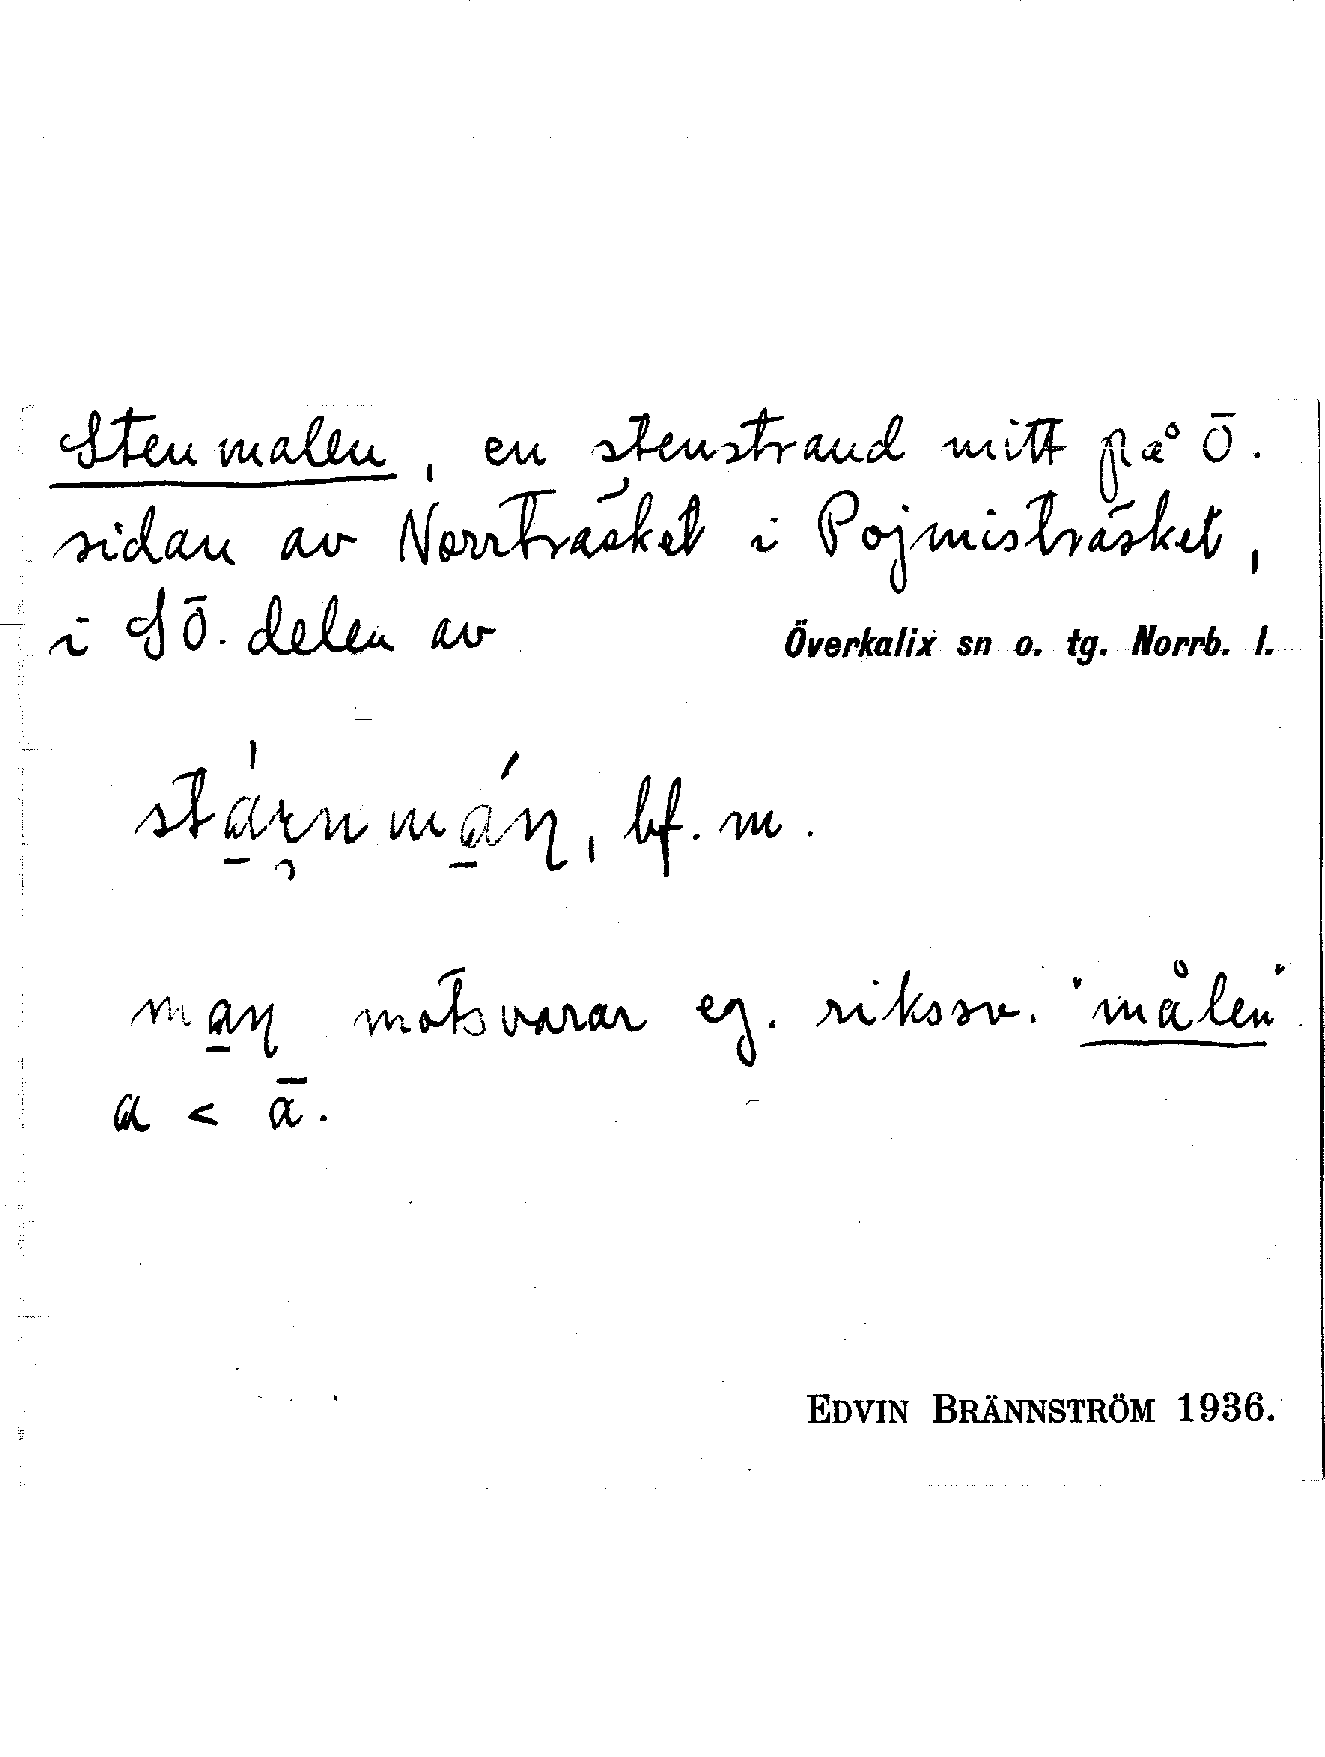 Stenmalen, en stenstrand mitt på Ö.
sidan av Norrträsket i Pojmisträsket,
i SÖ. delen av Överkalix sn o. tg. Norrb. l.
bf. m.
motsvarar eg. rikssv. "målen"
a < ā.
EDVIN BRÄNNSTRÖM 1936.